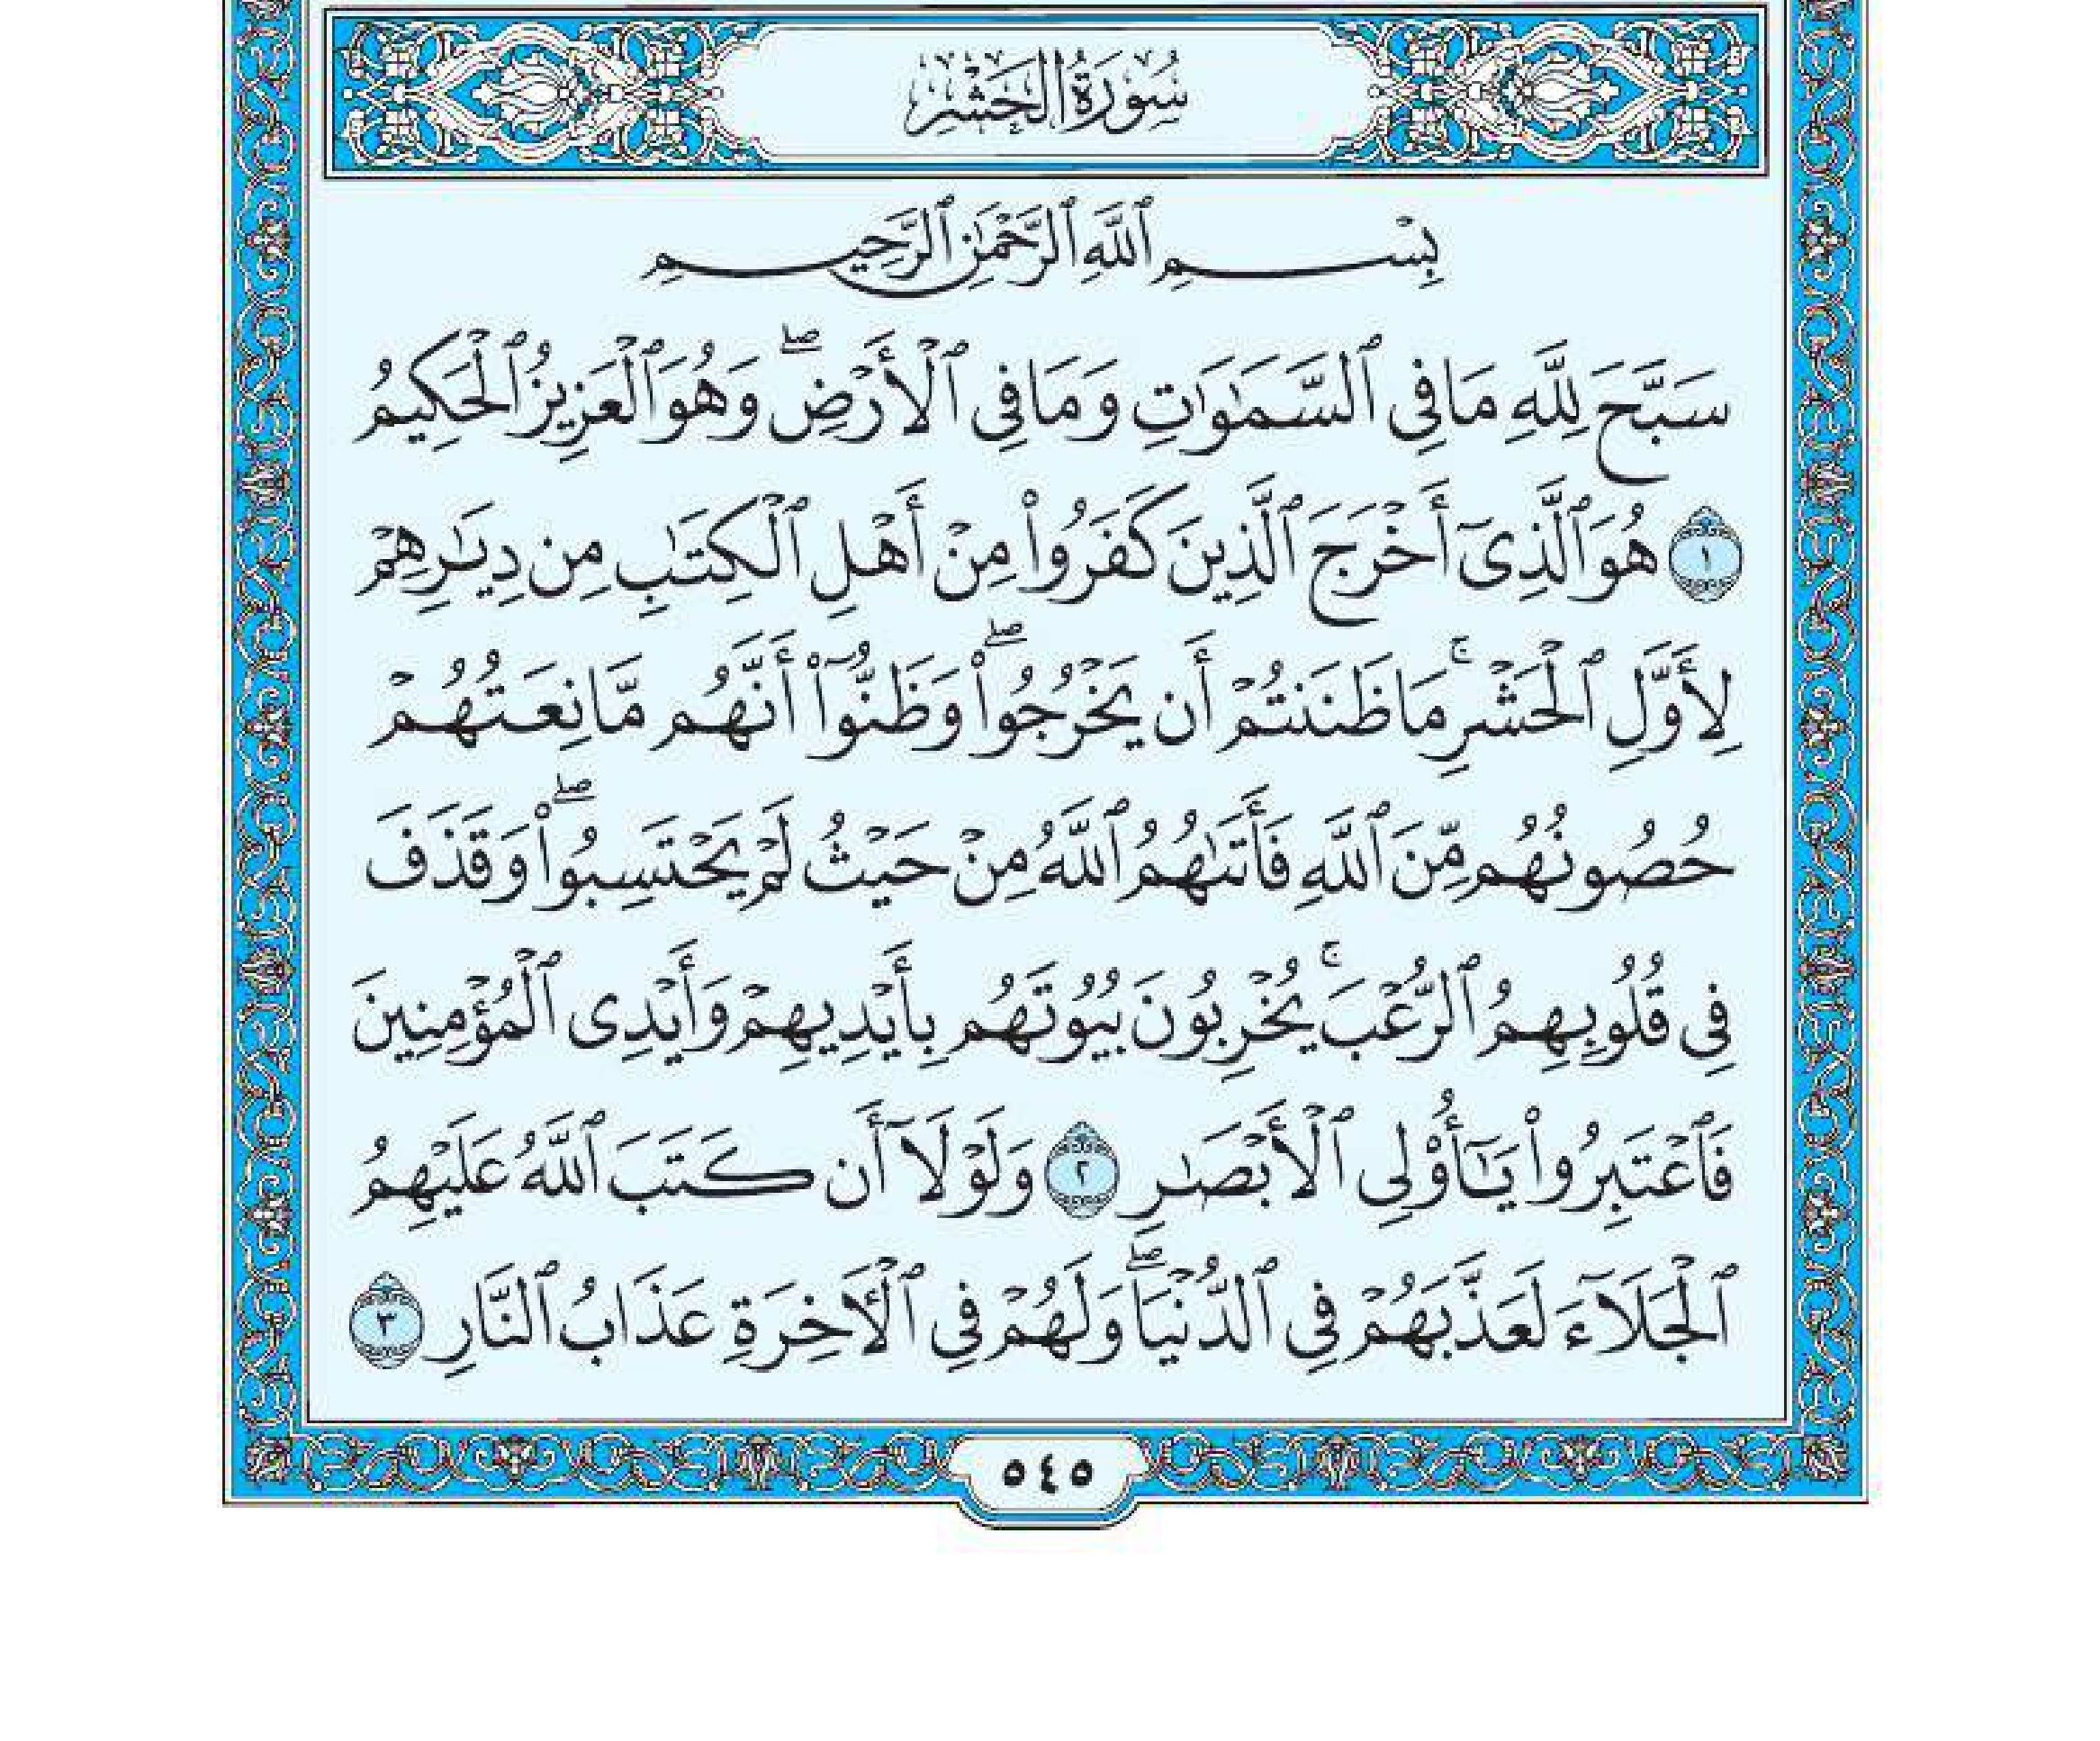 سُورَةُ الحَشْرِ
بِسْمِ ٱللَّهِ ٱلرَّحْمَٰنِ ٱلرَّحِيمِ
سَبَّحَ لِلَّهِ مَا فِى ٱلسَّمَٰوَٰتِ وَمَا فِى ٱلْأَرْضِ ۖ وَهُوَ ٱلْعَزِيزُ ٱلْحَكِيمُ
١ هُوَ ٱلَّذِىٓ أَخْرَجَ ٱلَّذِينَ كَفَرُوا۟ مِنْ أَهْلِ ٱلْكِتَٰبِ مِن دِيَٰرِهِمْ
لِأَوَّلِ ٱلْحَشْرِ ۚ مَا ظَنَنتُمْ أَن يَخْرُجُوا۟ ۖ وَظَنُّوٓا۟ أَنَّهُم مَّانِعَتُهُمْ
حُصُونُهُم مِّنَ ٱللَّهِ فَأَتَىٰهُمُ ٱللَّهُ مِنْ حَيْثُ لَمْ يَحْتَسِبُوا۟ ۖ وَقَذَفَ
فِى قُلُوبِهِمُ ٱلرُّعْبَ ۚ يُخْرِبُونَ بُيُوتَهُم بِأَيْدِيهِمْ وَأَيْدِى ٱلْمُؤْمِنِينَ
فَٱعْتَبِرُوا۟ يَٰٓأُو۟لِى ٱلْأَبْصَٰرِ ٢ وَلَوْلَآ أَن كَتَبَ ٱللَّهُ عَلَيْهِمُ
ٱلْجَلَآءَ لَعَذَّبَهُمْ فِى ٱلدُّنْيَا ۖ وَلَهُمْ فِى ٱلْءَاخِرَةِ عَذَابُ ٱلنَّارِ ٣
٥٤٥